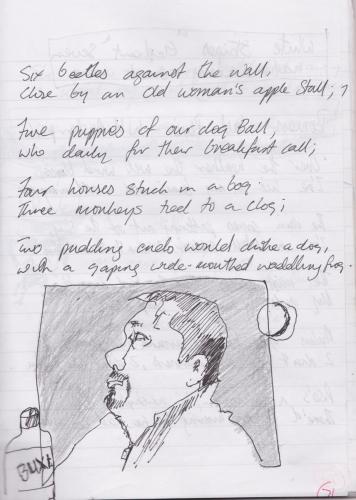 Six beetles against the wall,
Close by an old woman's apple stall;
Five puppies of our dog Ball,
Who daily for their breakfast call;
Four horses stuck in a bog.
Three monkeys tied to a clog;
Two pudding ends would choke a dog,
with a gaping wide-mouthed waddling frog.